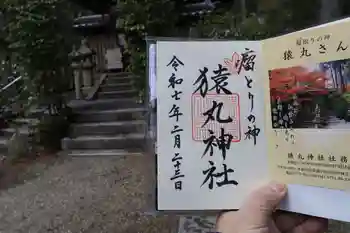 瘤とりの神
猿丸神社
令和七年二月二十三日
瘤取りの神
猿丸さん
猿丸神社社務